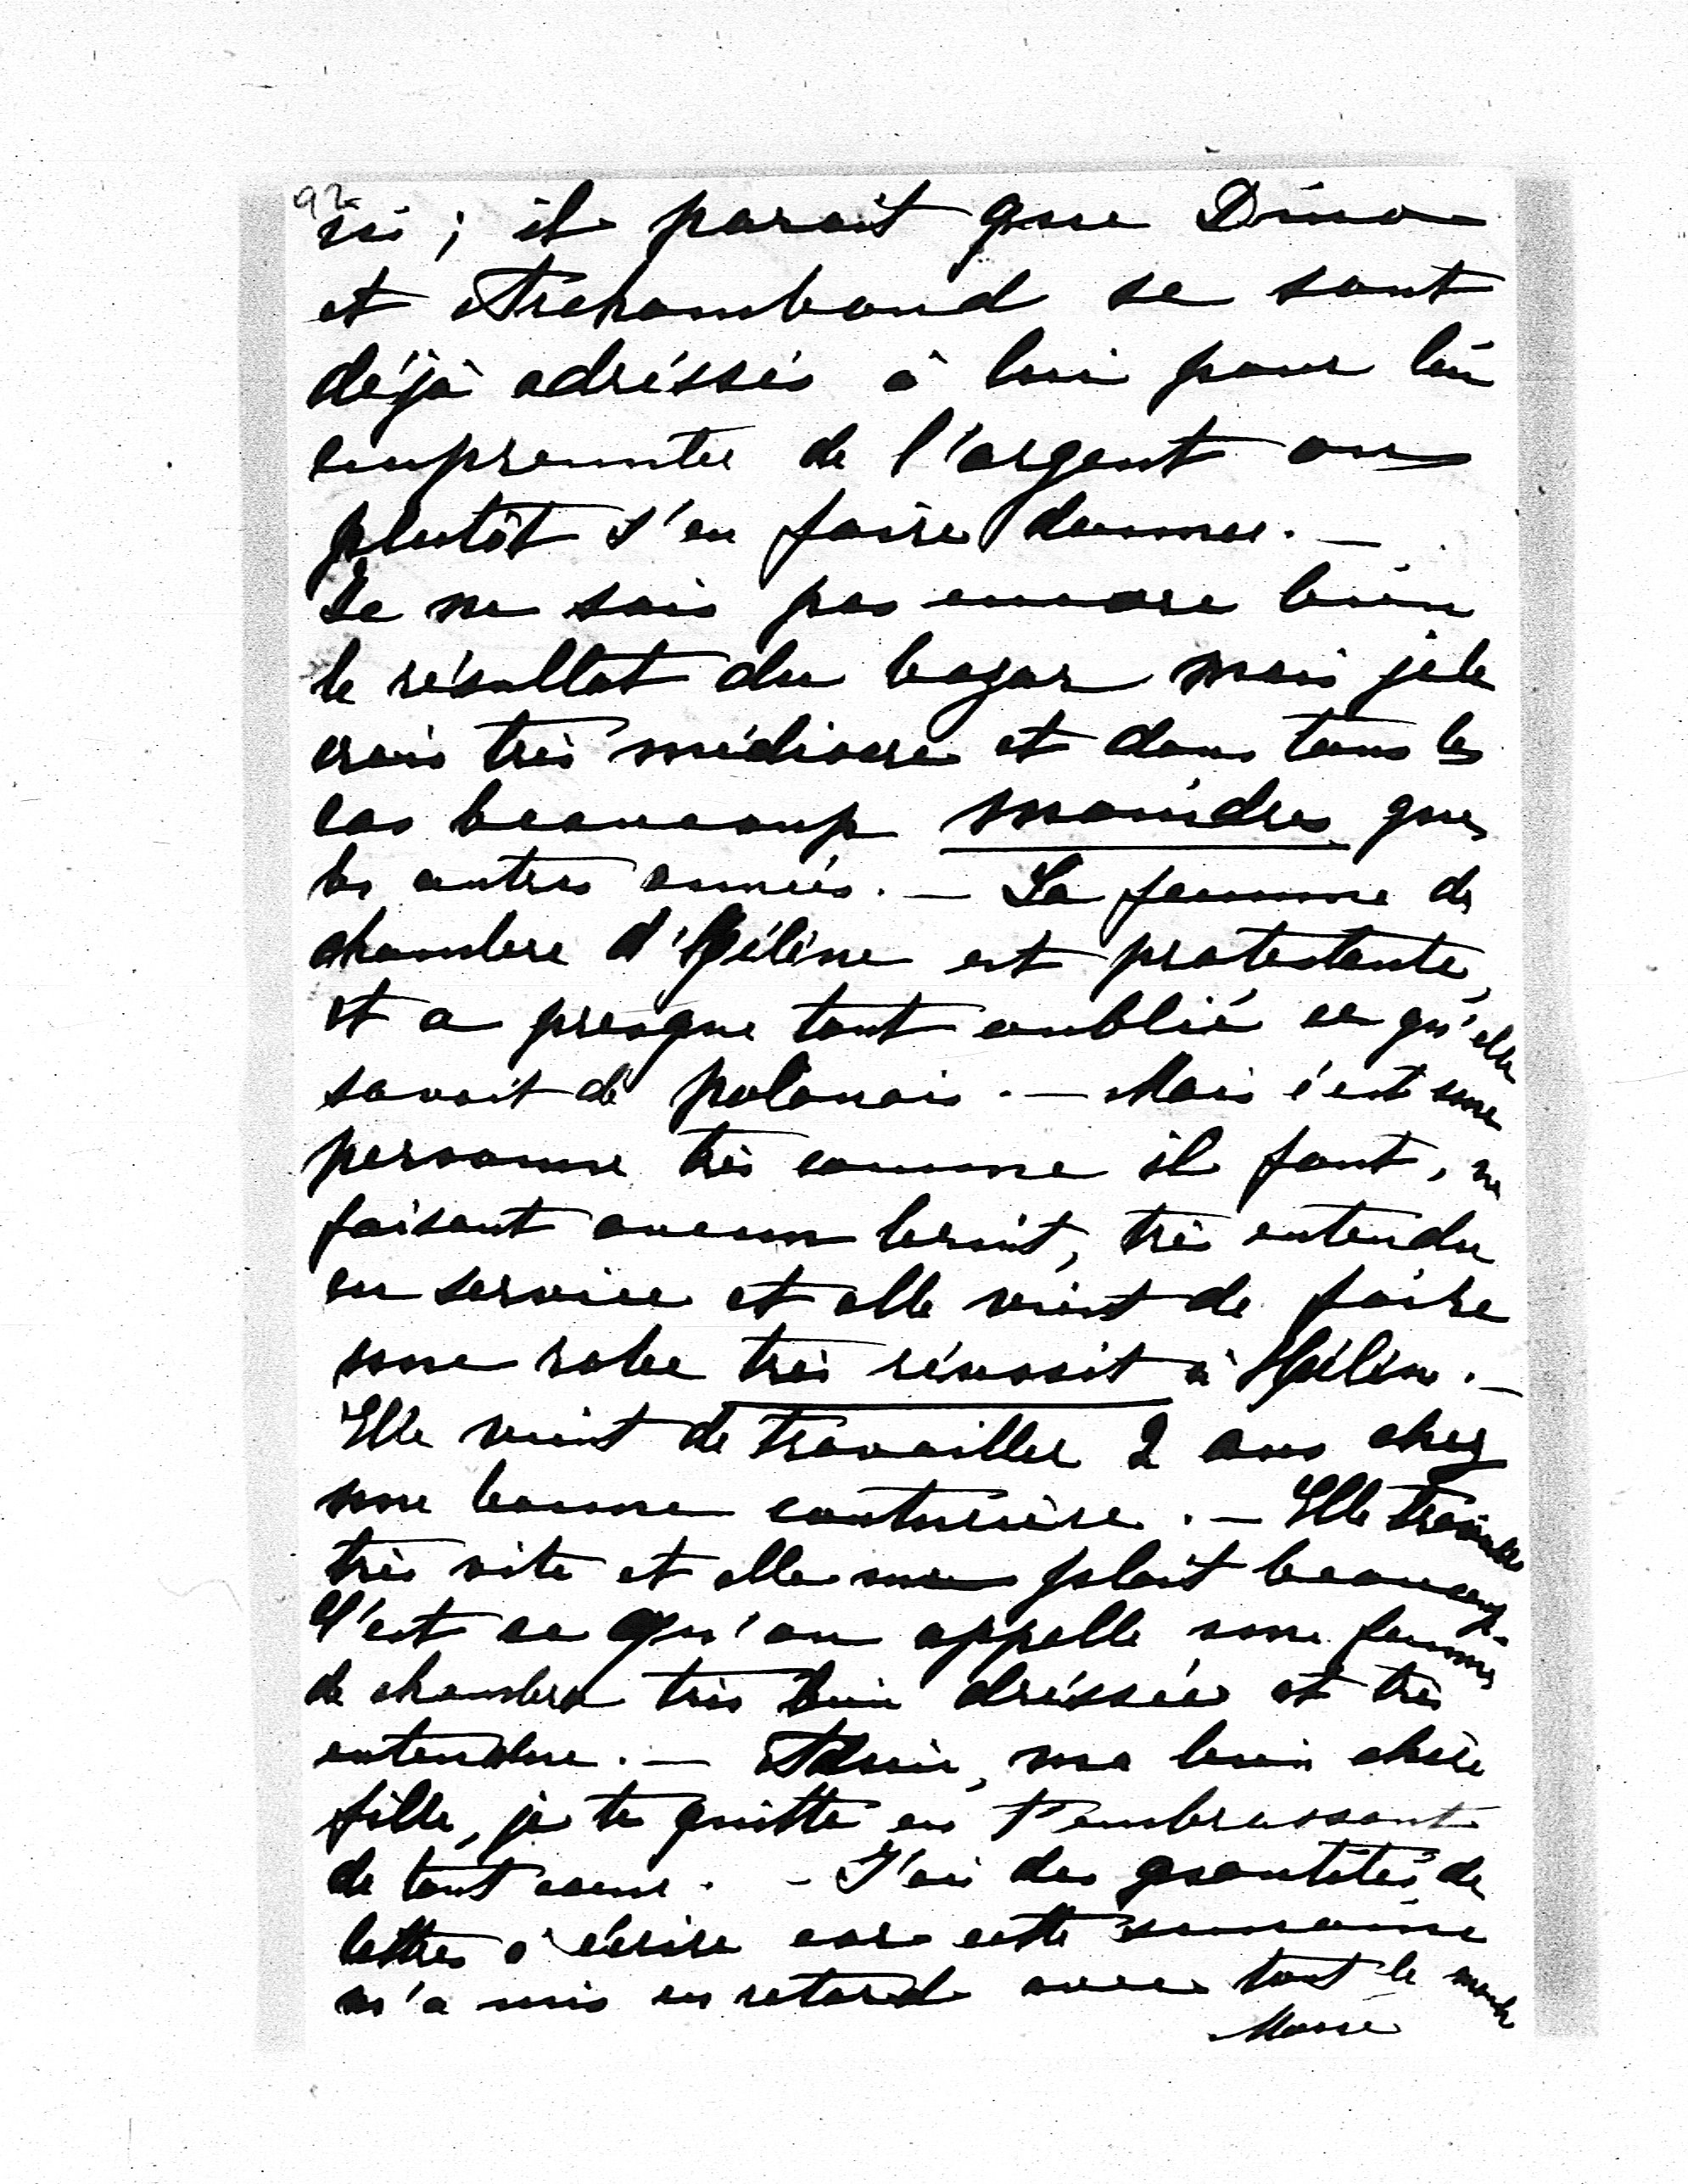 92
ici ; il parait que Dino
et Archambaud se sont
déjà adréssés à lui pour lui
emprunter de l'argent ou
plutôt s'en faire donner. —
Je ne sais pas encore bien
le résultat du bazar mais je le
crois très médiocre et dans tous les
cas beaucoup moindre que
les autres années. — La femme de
chambre d'Hélène est protestante,
et a presque tout oublié ce qu'elle
savait de polonais. — Mais c'est une
personne très comme il faut, ne
faisant aucun bruit, très entendu
en service et elle vient de faire
une robe très réussit à Hélène. —
Elle vient de travailler 2 ans chez
une bonne couturière. — Elle travaille
très vite et elle me plait beaucoup.
C'est ce qu'on appelle une femme
de chambre très bien dréssée et très
entendue. — Adieu, ma bien chère
fille, je te quitte en t'embrassant
de tout coeur. - J'ai des quantités de
lettres à écrire car cette semaine
m'a mis en retard avec tout le monde